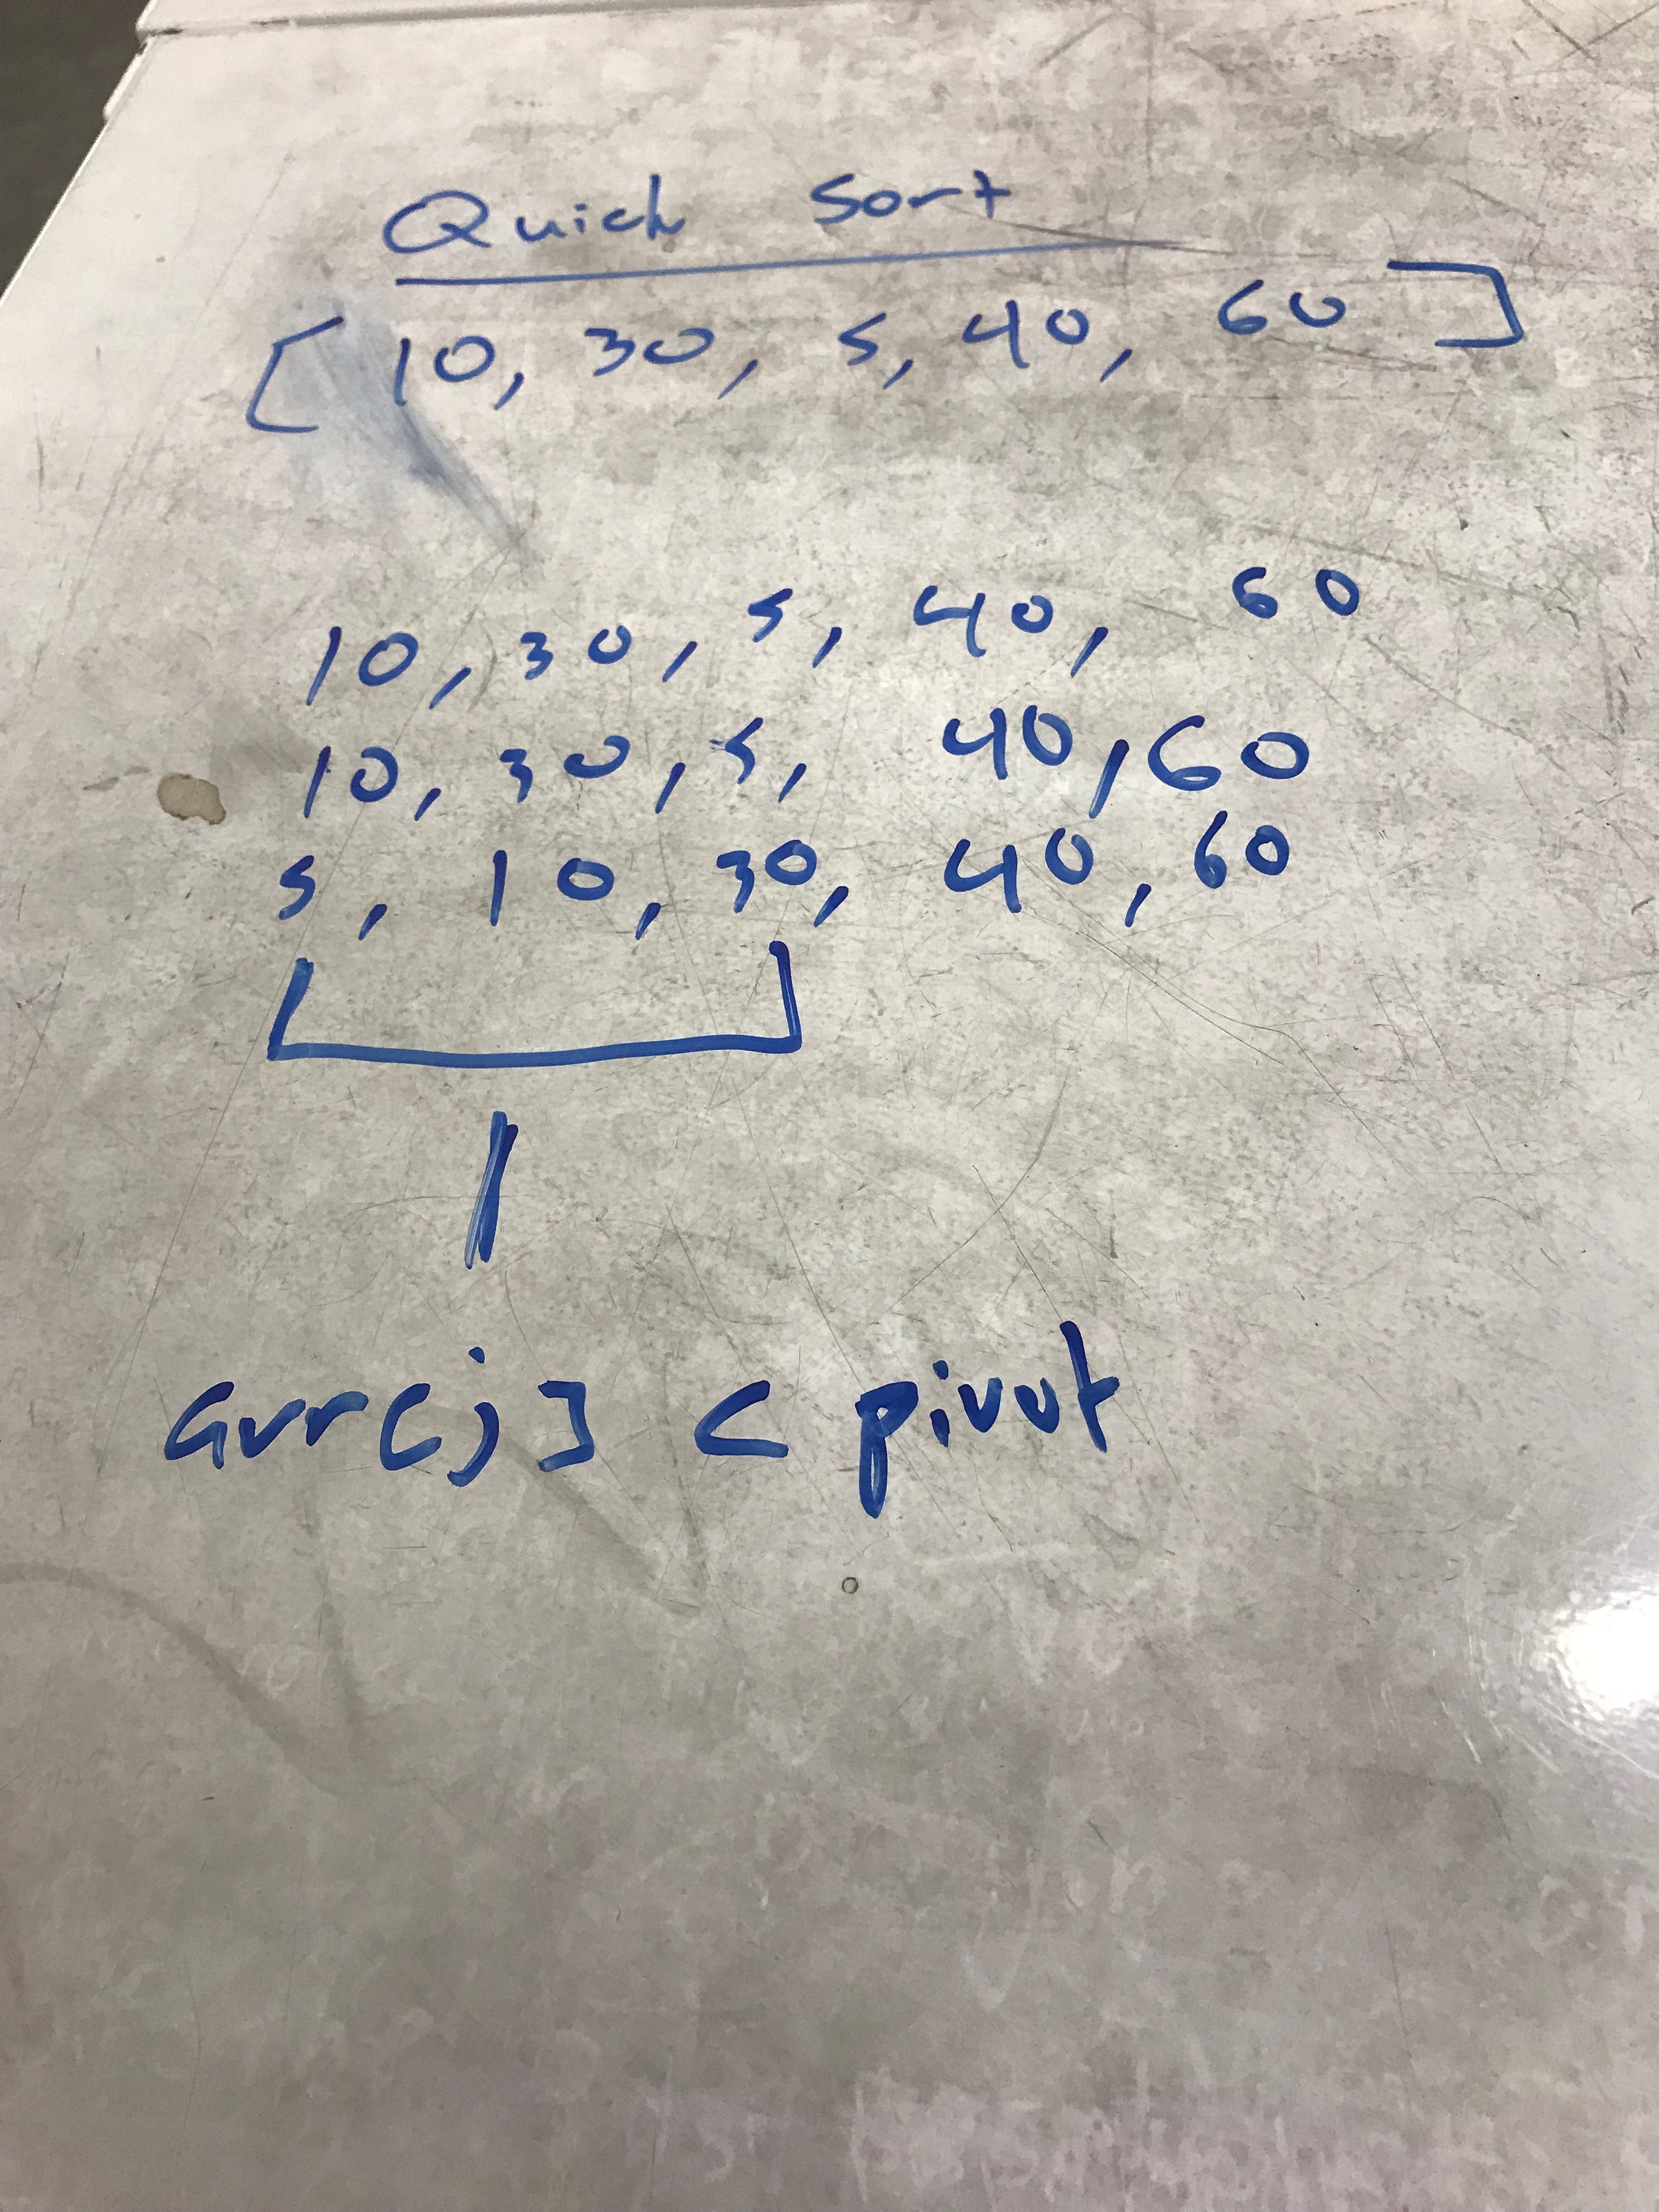 Quick Sort
[ 10, 30, 5, 40, 60 ]
10, 30, 5, 40, 60
10, 30, 5, 40, 60
5, 10, 30, 40, 60
arr[j] < pivot